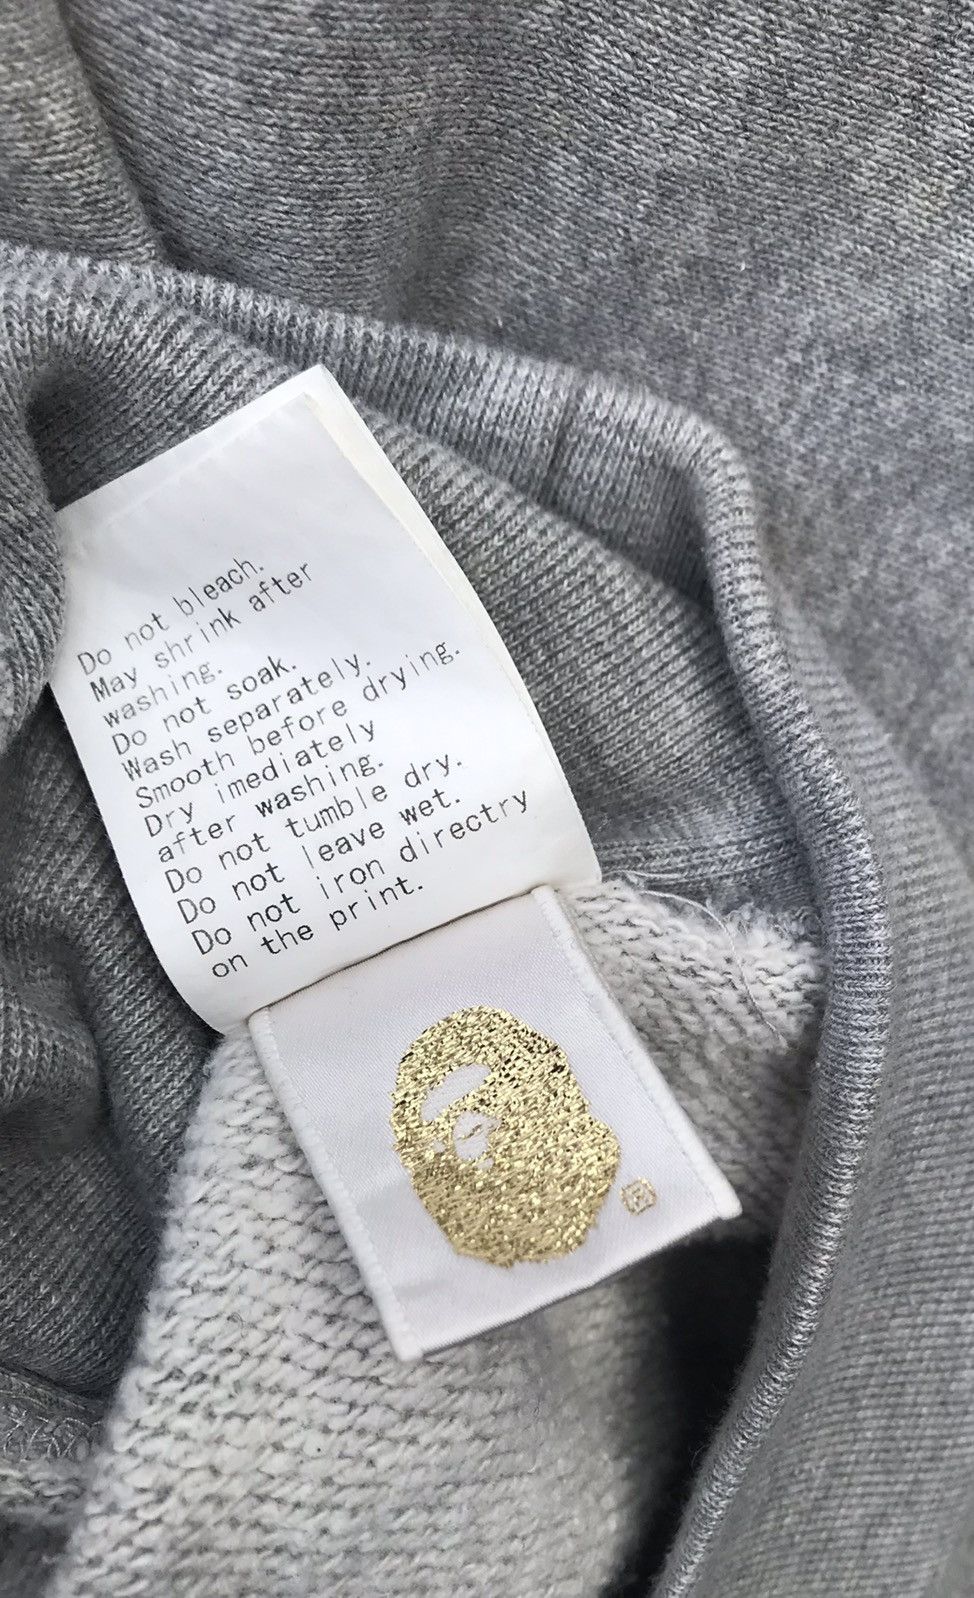 Do not bleach.
May shrink after
washing.
Do not soak.
Wash separately.
Smooth before drying.
Dry imediately
after washing.
Do not tumble dry.
Do not leave wet.
Do not iron directry
on the print.